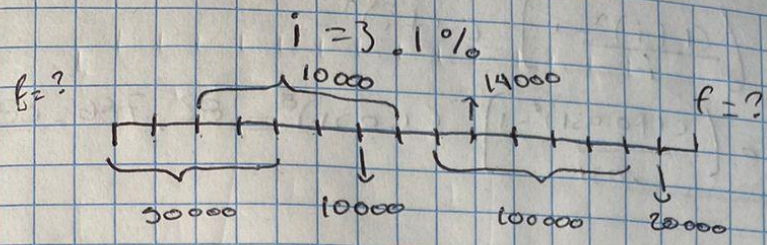 i = 3.1%
f = ?
10000
14000
f = ?
30000
10000
100000
20000